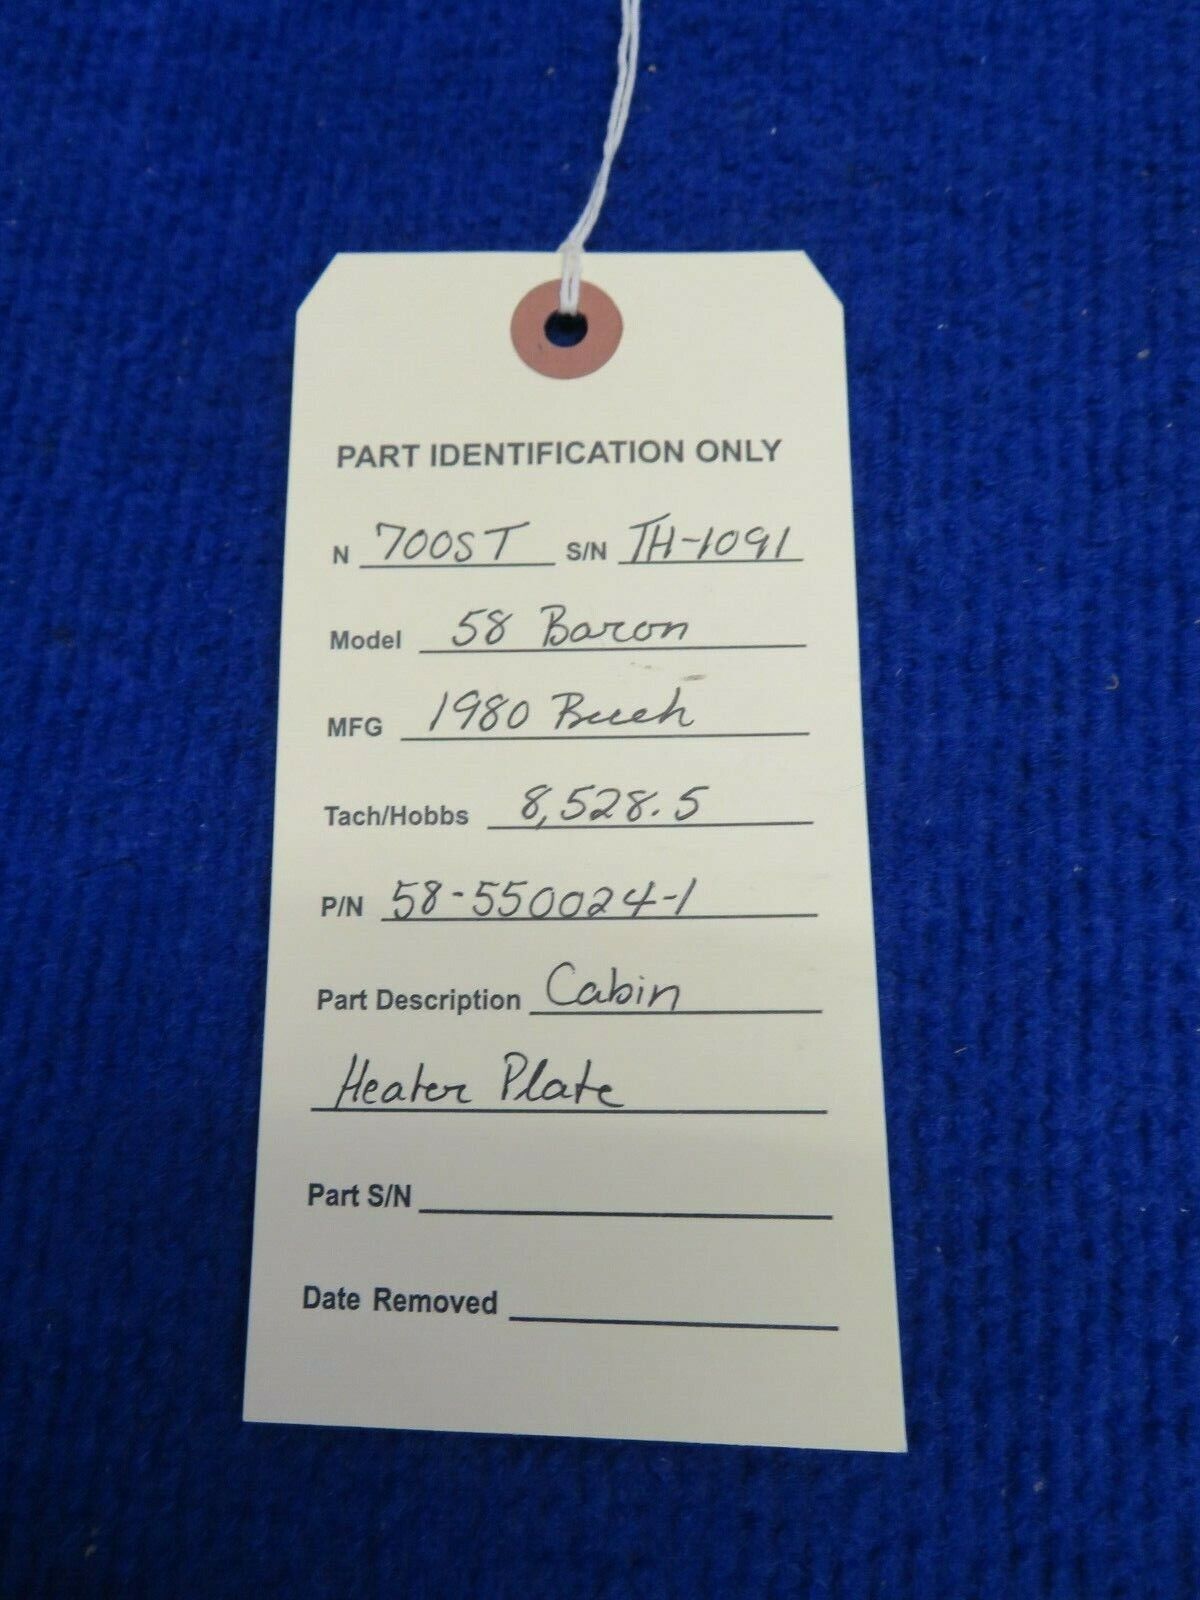 PART IDENTIFICATION ONLY
N 700ST S/N TH-1091
Model 58 Baron
MFG 1980 Beech
Tach/Hobbs 8,528.5
P/N 58-550024-1
Part Description Cabin
Heater Plate
Part S/N
Date Removed